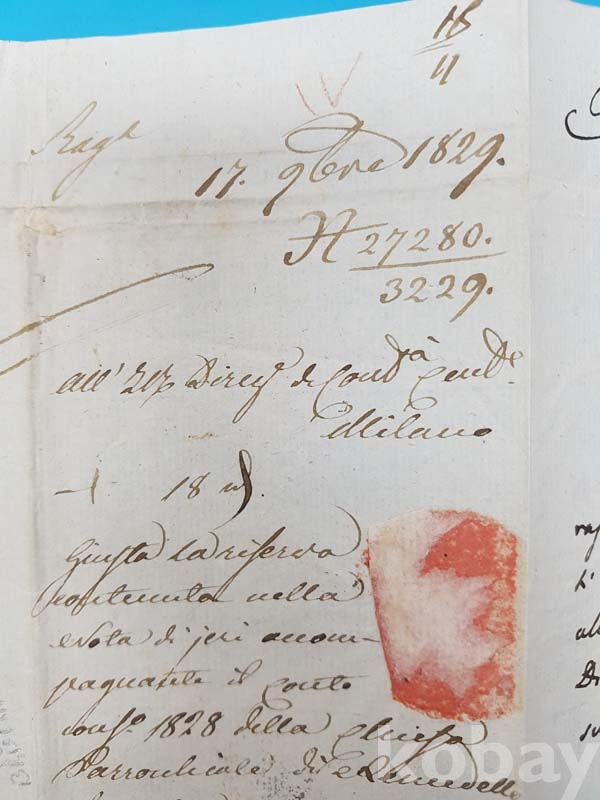 18
11
Rag.a
17. 9bre 1829.
N 27280.
3229.
all' Direz. di Cont.à
Milano
18
Giusta la riserva
contenuta nella
Nota di jeri accom-
pagnante il conto
cons.o 1828 della Chiesa
Parrocchiale di
kobay